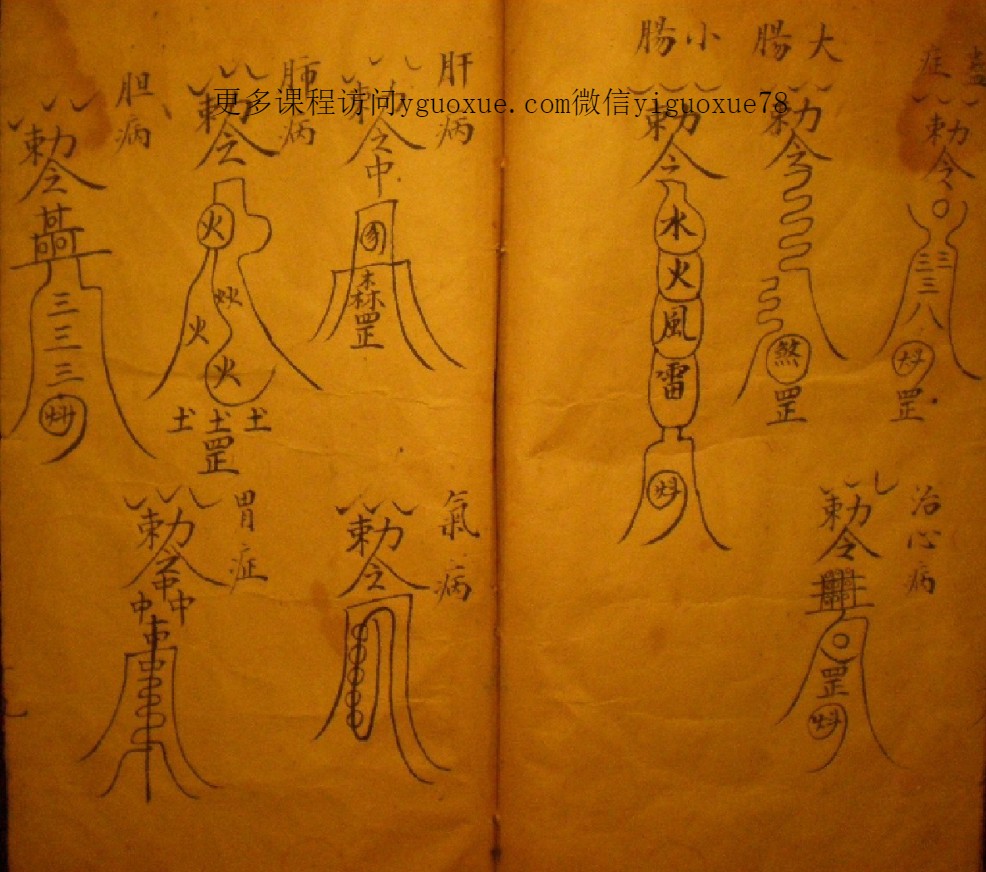 更多课程访问yguoxue.com微信yiguoxue78
症
勅令
三三
三
八
罡
大腸
勅令
煞
罡
小腸
勅令
水
火
風
雷
治心病
勅令
罡
肝病
勅令
中
森
罡
肺病
勅令
火
火
火
火
土土土
罡
胆病
勅令
三
三
三
氣病
勅令
胃症
勅令
中
中中